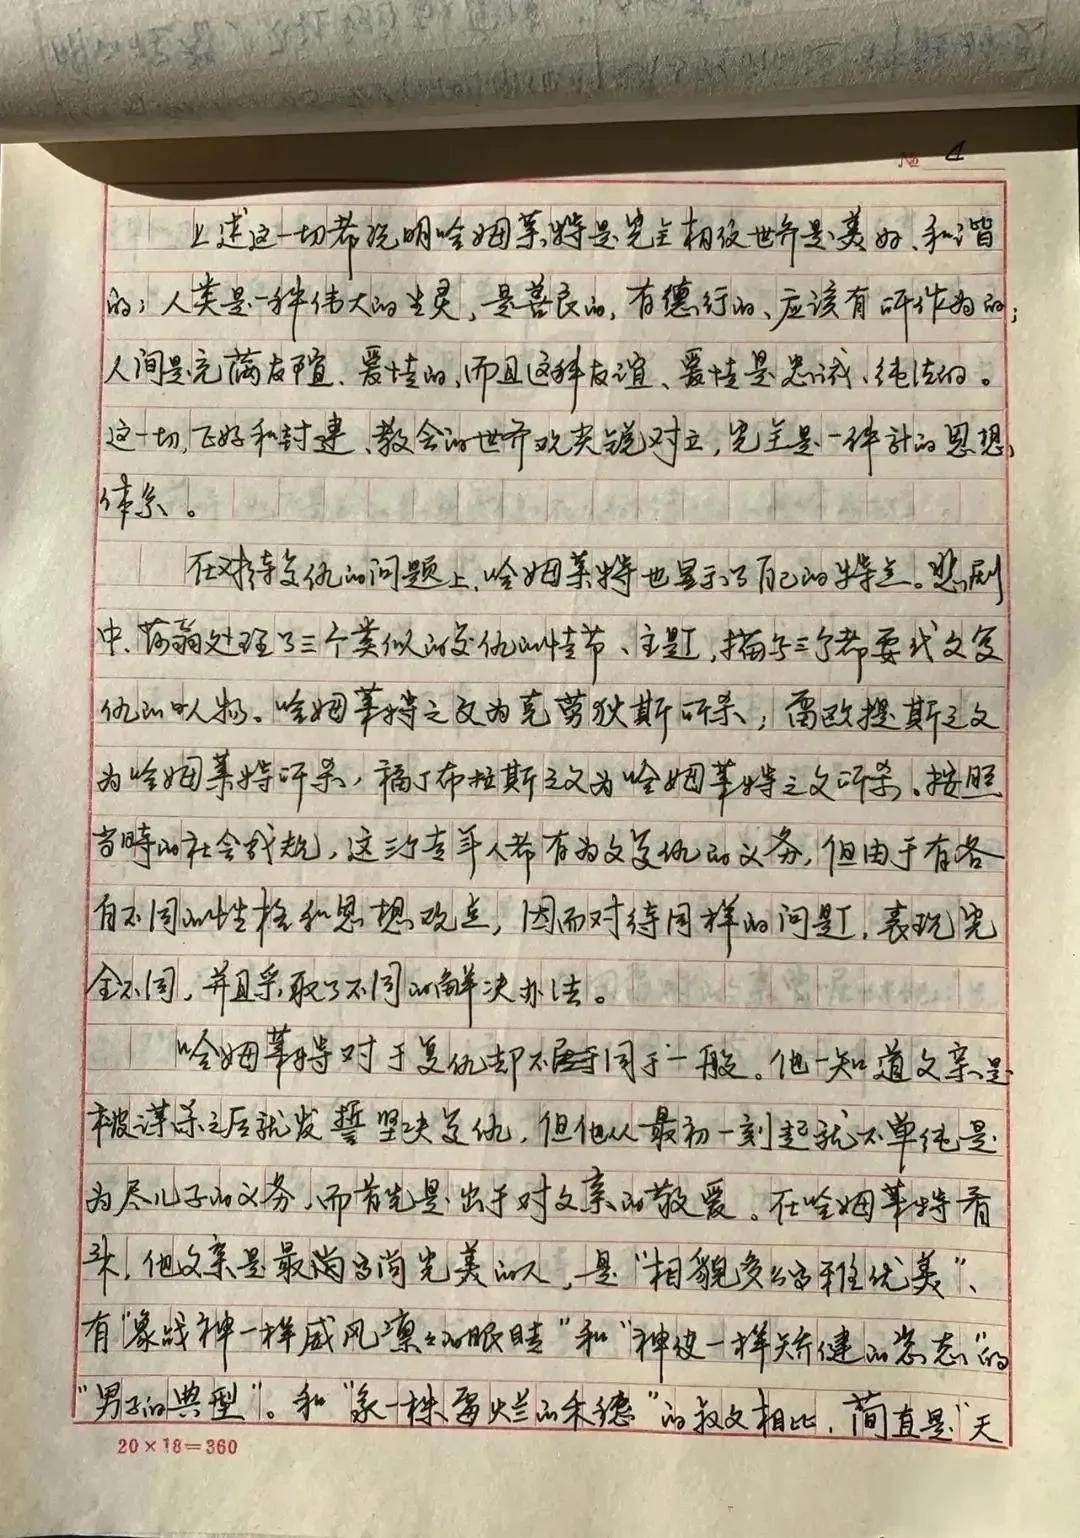 № 4
上述这一切都说明哈姆莱特是完全相信世界是美好、和谐
的；人类是一种伟大的生灵，是善良的，有德行的、应该有所作为的；
人间是充满友谊、爱情的，而且这种友谊、爱情是忠诚、纯洁的。
这一切，正好和封建、教会的世界观尖锐对立，完全是一种新的思想
体系。
在对待复仇的问题上，哈姆莱特也显示了自己的特点。悲剧
中，莎翁处理了三个类似的复仇的情节、主题，描写三个都要找父复
仇的人物。哈姆莱特之父为克劳狄斯所杀；雷欧提斯之父
为哈姆莱特所杀，福丁布拉斯之父为哈姆莱特之父所杀。按照
当時的社会战规，这三个青年人都有为父复仇的义务，但由于有各
自不同的性格和思想观点，因而对待同样的问题，表现完
全不同，并且采取了不同的解决办法。
哈姆莱特对于复仇却不同于一般。他一知道父亲是
被谋杀之后就发誓坚决复仇，但他从最初一刻起就不单纯是
为尽儿子的义务，而首先是出于对父亲的敬爱。在哈姆莱特看
来，他父亲是最高尚完美的人，是“相貌多么高雅优美”、
有“象战神一样威风凛々的眼睛”和“神使一样矫健的姿态”的
“男子的典型”。和“象一株霉烂的禾穗”的叔父相比，简直是“天
20×18=360